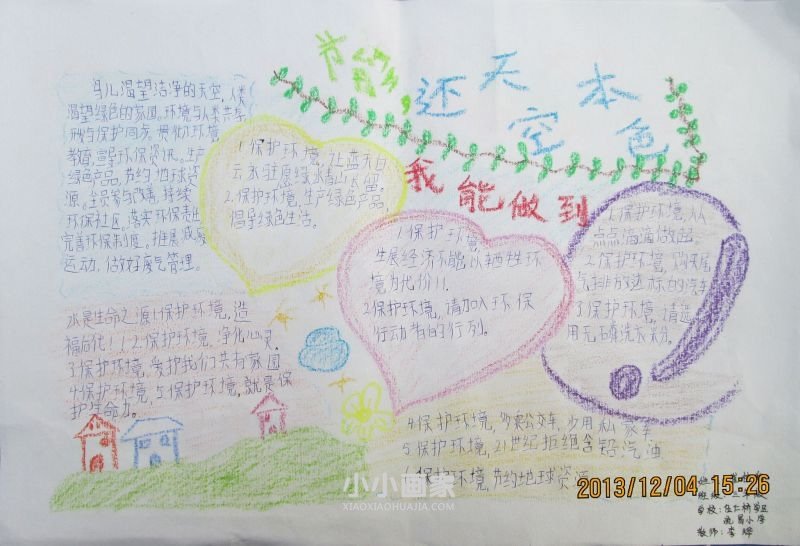 节能,还天空本色
我能做到
鸟儿渴望洁净的天空,人类
渴望绿色的家园,环境与人类共享
教育,
绿色产品,节约地球资
源。
环保社区。落实环保
完善环保制度。推展减废
运动,做好废气管理。
1.保护环境,让蓝天白
云永驻愿绿水青山长留。
2.保护环境,生产绿色产品,
倡导绿色生活。
1.保护环境,
发展经济不能以牺牲环
境为代价!!
2.保护环境,请加入环保
行动者的行列。
1.保护环境,从
点点滴滴做起。
2.保护环境,购买尾
气排放达标的汽车
3保护环境,请选
用无磷洗衣粉。
水是生命之源!保护环境,造
福后代!!2.保护环境,净化心灵.
3保护环境,爱护我们共有家园
4保护环境,5保护环境,就是保
护生命力。
4.保护环境,多乘公交车,少用私家车
5保护环境,21世纪拒绝含铅汽油
6保护环境,节约地球资源
小小画家
XIAOXIAOHUAJIA.COM
2013/12/04 15:26
学校:任仁桥学区
小学
教师:李